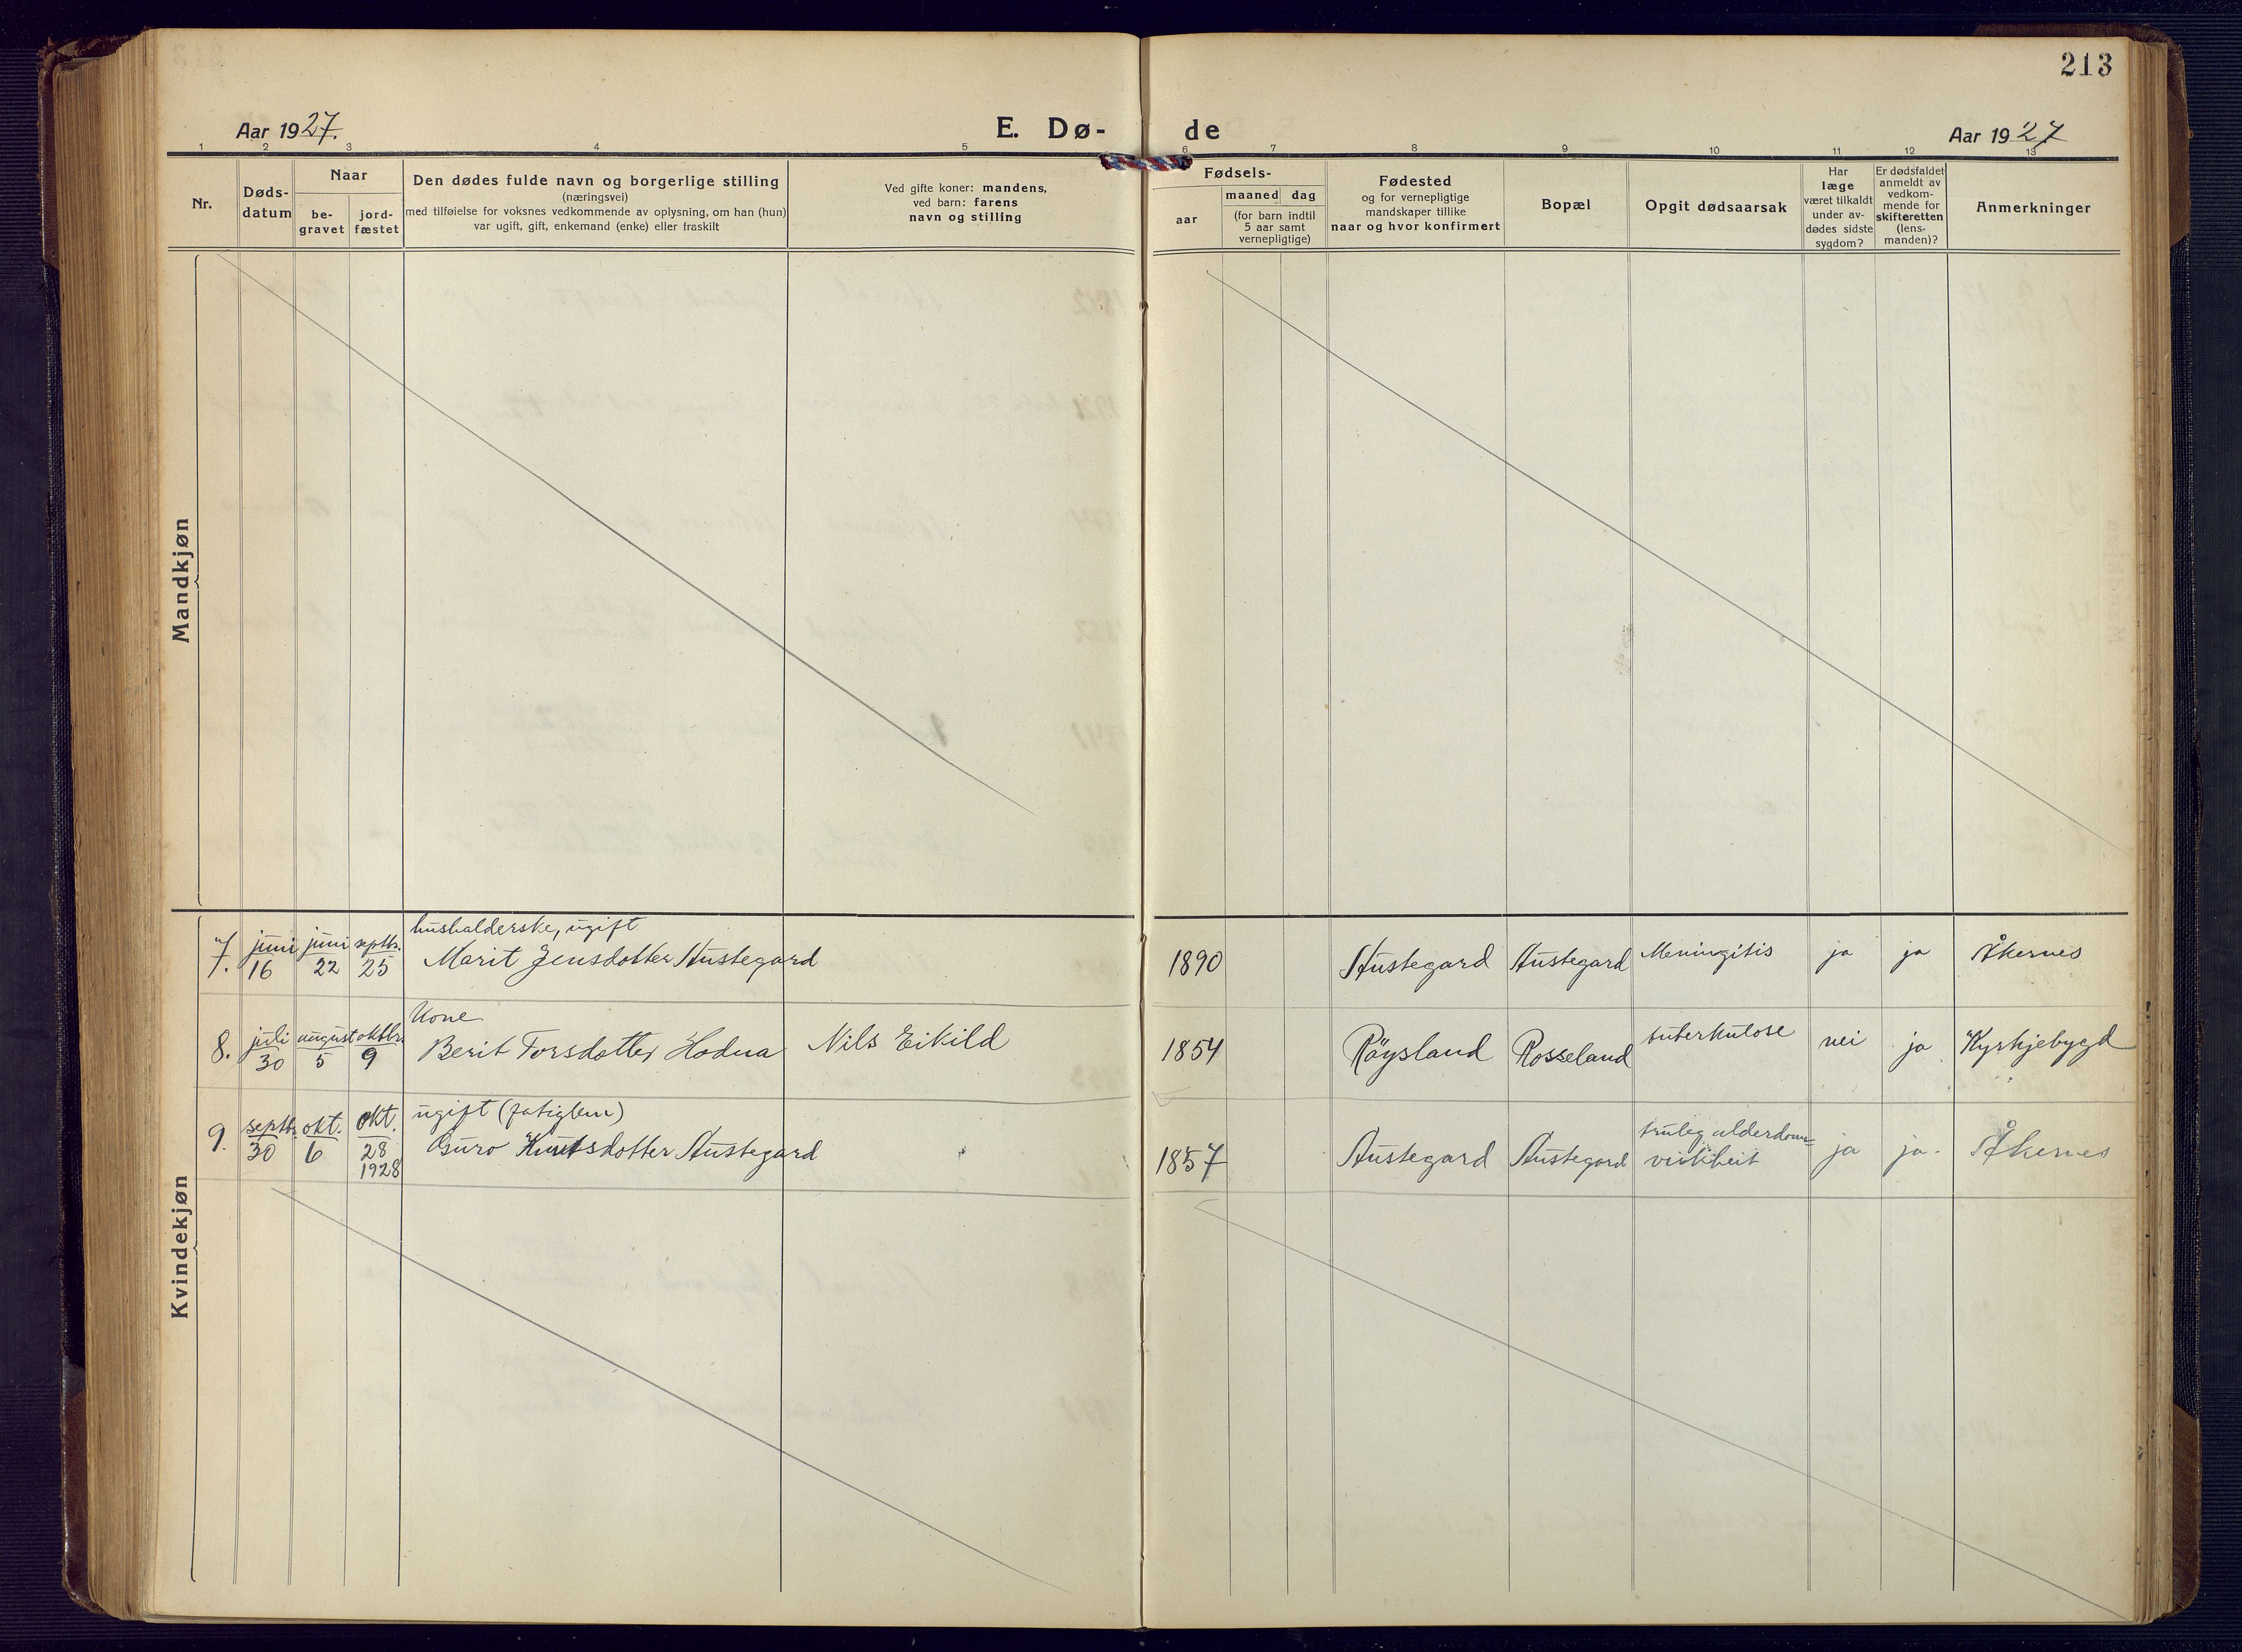 213
Aar 1927.
E. Dø-
de
Aar 1927
1 2 3 4 5 6 7 8 9 10 11 12 13
Nr.
Døds-
datum
Naar
be-
gravet
jord-
fæstet
Den dødes fulde navn og borgerlige stilling
(næringsvei)
med tilføielse for voksnes vedkommende av oplysning, om han (hun)
var ugift, gift, enkemand (enke) eller fraskilt
Ved gifte koner: mandens,
ved barn: farens
navn og stilling
Fødsels-
aar
maaned dag
(for barn indtil
5 aar samt
vernepligtige)
Fødested
og for vernepligtige
mandskaper tillike
naar og hvor konfirmert
Bopæl
Opgit dødsaarsak
Har
læge
været tilkaldt
under av-
dødes sidste
sygdom?
Er dødsfaldet
anmeldt av
vedkom-
mende for
skifteretten
(lens-
manden)?
Anmerkninger
Mandkjøn
Kvindekjøn
7. juni 16 juni 22 septbr. 25
hushalderske, ugift
Marit Jensdotter Austegard
1890 Austegard Austegard Meningitis ja ja Åkernes
8. juli 30 august 5 oktbr. 9
Kone
Berit Torsdotter Hodna Nils Eikild
1854 Röysland Rosseland tuberkulose nei ja Kyrkjebygd
9. septbr. 30 okt. 6 okt. 28 1928
ugift (fatiglem)
Guro Knutsdotter Austegard
1857 Austegard Austegard truleg alderdoms- ja ja. Åkernes